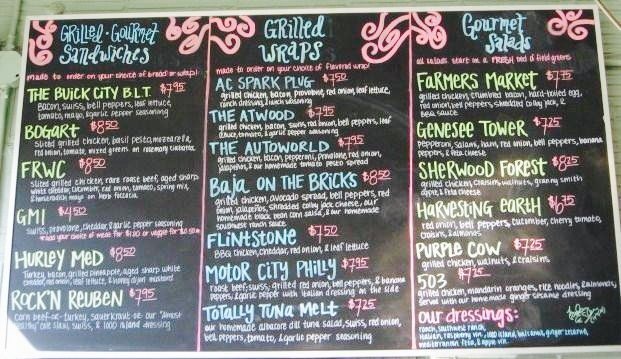 Grilled · Gourmet
Sandwiches
made to order on your choice of bread or wrap!
THE BUICK CITY B.L.T. $7.95
Bacon, swiss, bell peppers, leaf lettuce,
tomato, mayo, & garlic pepper seasoning
BOGART $8.50
Sliced grilled chicken, basil pesto, mozzarella,
red onion, tomato, mixed greens on rosemary ciabatta
FRWC $8.50
Sliced grilled chicken, rare roast beef, aged sharp
white cheddar, cucumber, red onion, tomato, spring mix,
& horseradish mayo on herb focaccia.
GMI $4.50
Swiss, provolone, cheddar, & garlic pepper seasoning
HURLEY MED $8.50
Turkey, bacon, grilled pineapple, aged sharp white
cheddar, red onion, leaf lettuce, & honey dijon mustard
ROCK'N REUBEN $7.95
corn beef-or-turkey, sauerkraut, or our "almost
healthy" cole slaw, swiss, & 1000 island dressing
GRILLED
WRAPS
made to order on your choice of flavored wrap!
AC SPARK PLUG $7.50
grilled chicken, bacon, provolone, red onion, leaf lettuce,
ranch dressing, ranch seasoning
THE ATWOOD $7.95
grilled chicken, bacon, swiss, red onion, bell peppers, leaf
lettuce, tomato, & garlic pepper seasoning
THE AUTOWORLD $7.95
grilled chicken, bacon, pepperoni, provolone, red onion,
jalapeños, & our homemade tomato pesto spread
BAJA ON THE BRICKS $8.50
grilled chicken, avocado spread, bell peppers, red
onion, jalapeños, shredded colby jack cheese, our
homemade black bean corn salsa, & our homemade
southwest ranch sauce
FLINTSTONE $7.50
BBQ chicken, cheddar, red onion, & leaf lettuce
MOTOR CITY PHILLY $7.95
roast beef, swiss, grilled red onion, bell peppers, & banana
peppers, & garlic pepper with italian dressing on the side
TOTALLY TUNA MELT $7.25
our homemade albacore dill tuna salad, swiss, red onion,
bell peppers, tomato, & garlic pepper seasoning
Gourmet
Salads
all salads start on a FRESH bed of field greens
FARMERS MARKET $7.75
grilled chicken, crumbled bacon, hard-boiled egg,
red onion, bell peppers, shredded colby jack, &
BBQ sauce
GENESEE TOWER $7.25
pepperoni, salami, ham, red onion, bell peppers, banana
peppers, & feta cheese
SHERWOOD FOREST $8.25
grilled chicken, craisins, walnuts, granny smith
apple, & feta cheese
HARVESTING EARTH $6.75
red onion, bell peppers, cucumber, cherry tomato,
craisins, & almonds
PURPLE COW $7.25
grilled chicken, walnuts, & craisins
503 $7.75
grilled chicken, mandarin oranges, rice noodles, & almonds,
served with our homemade ginger sesame dressing
our dressings:
ranch, southwest ranch,
italian, raspberry vin., 1000 island, balsamic, ginger sesame,
mediterranean feta, & apple vin.